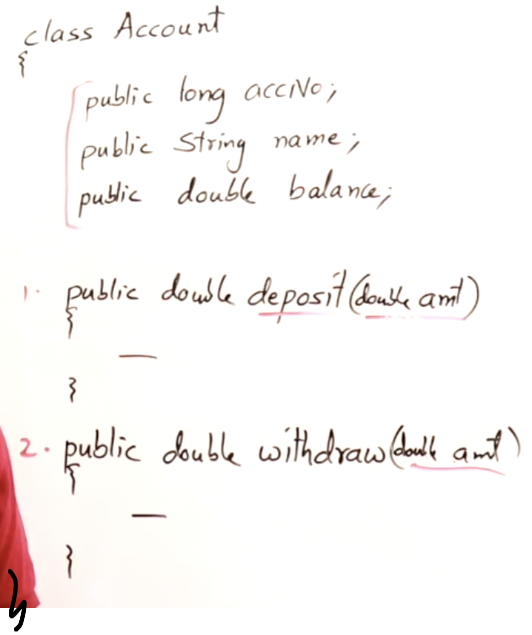 class Account
{
public long accNo;
public String name;
public double balance;
1. public double deposit(double amt)
{
—
}
2. public double withdraw(double amt)
{
—
}
}